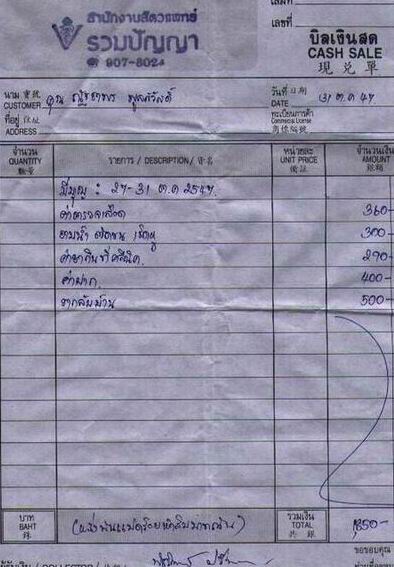 เล่มที่
สำนักงานสัตวแพทย์
รวมปัญญา
☎ 907-8024
เลขที่
บิลเงินสด
CASH SALE
現兌單
นาม 寶號
CUSTOMER คุณ
วันที่ 日期
DATE 31 ต.ค 47
ที่อยู่ 住址
ADDRESS
ทะเบียนการค้า
Commercial License
商標號數
จำนวน
QUANTITY
數量
รายการ / DESCRIPTION / 貨名
หน่วยละ
UNIT PRICE
จำนวนเงิน
AMOUNT
: 27-31 ต.ค 2547.
ค่าตรวจเลือด 360-
300-
ค่ายากินที่คลีนิค 290-
ค่าฝาก 400-
ยากลับบ้าน 500-
บาท
BAHT
銖
(หนึ่งพันแปดร้อยห้าสิบบาทถ้วน)
รวมเงิน
TOTAL
共銀
1,850-
ขอขอบคุณ
ผู้รับเงิน / COLLECTOR /